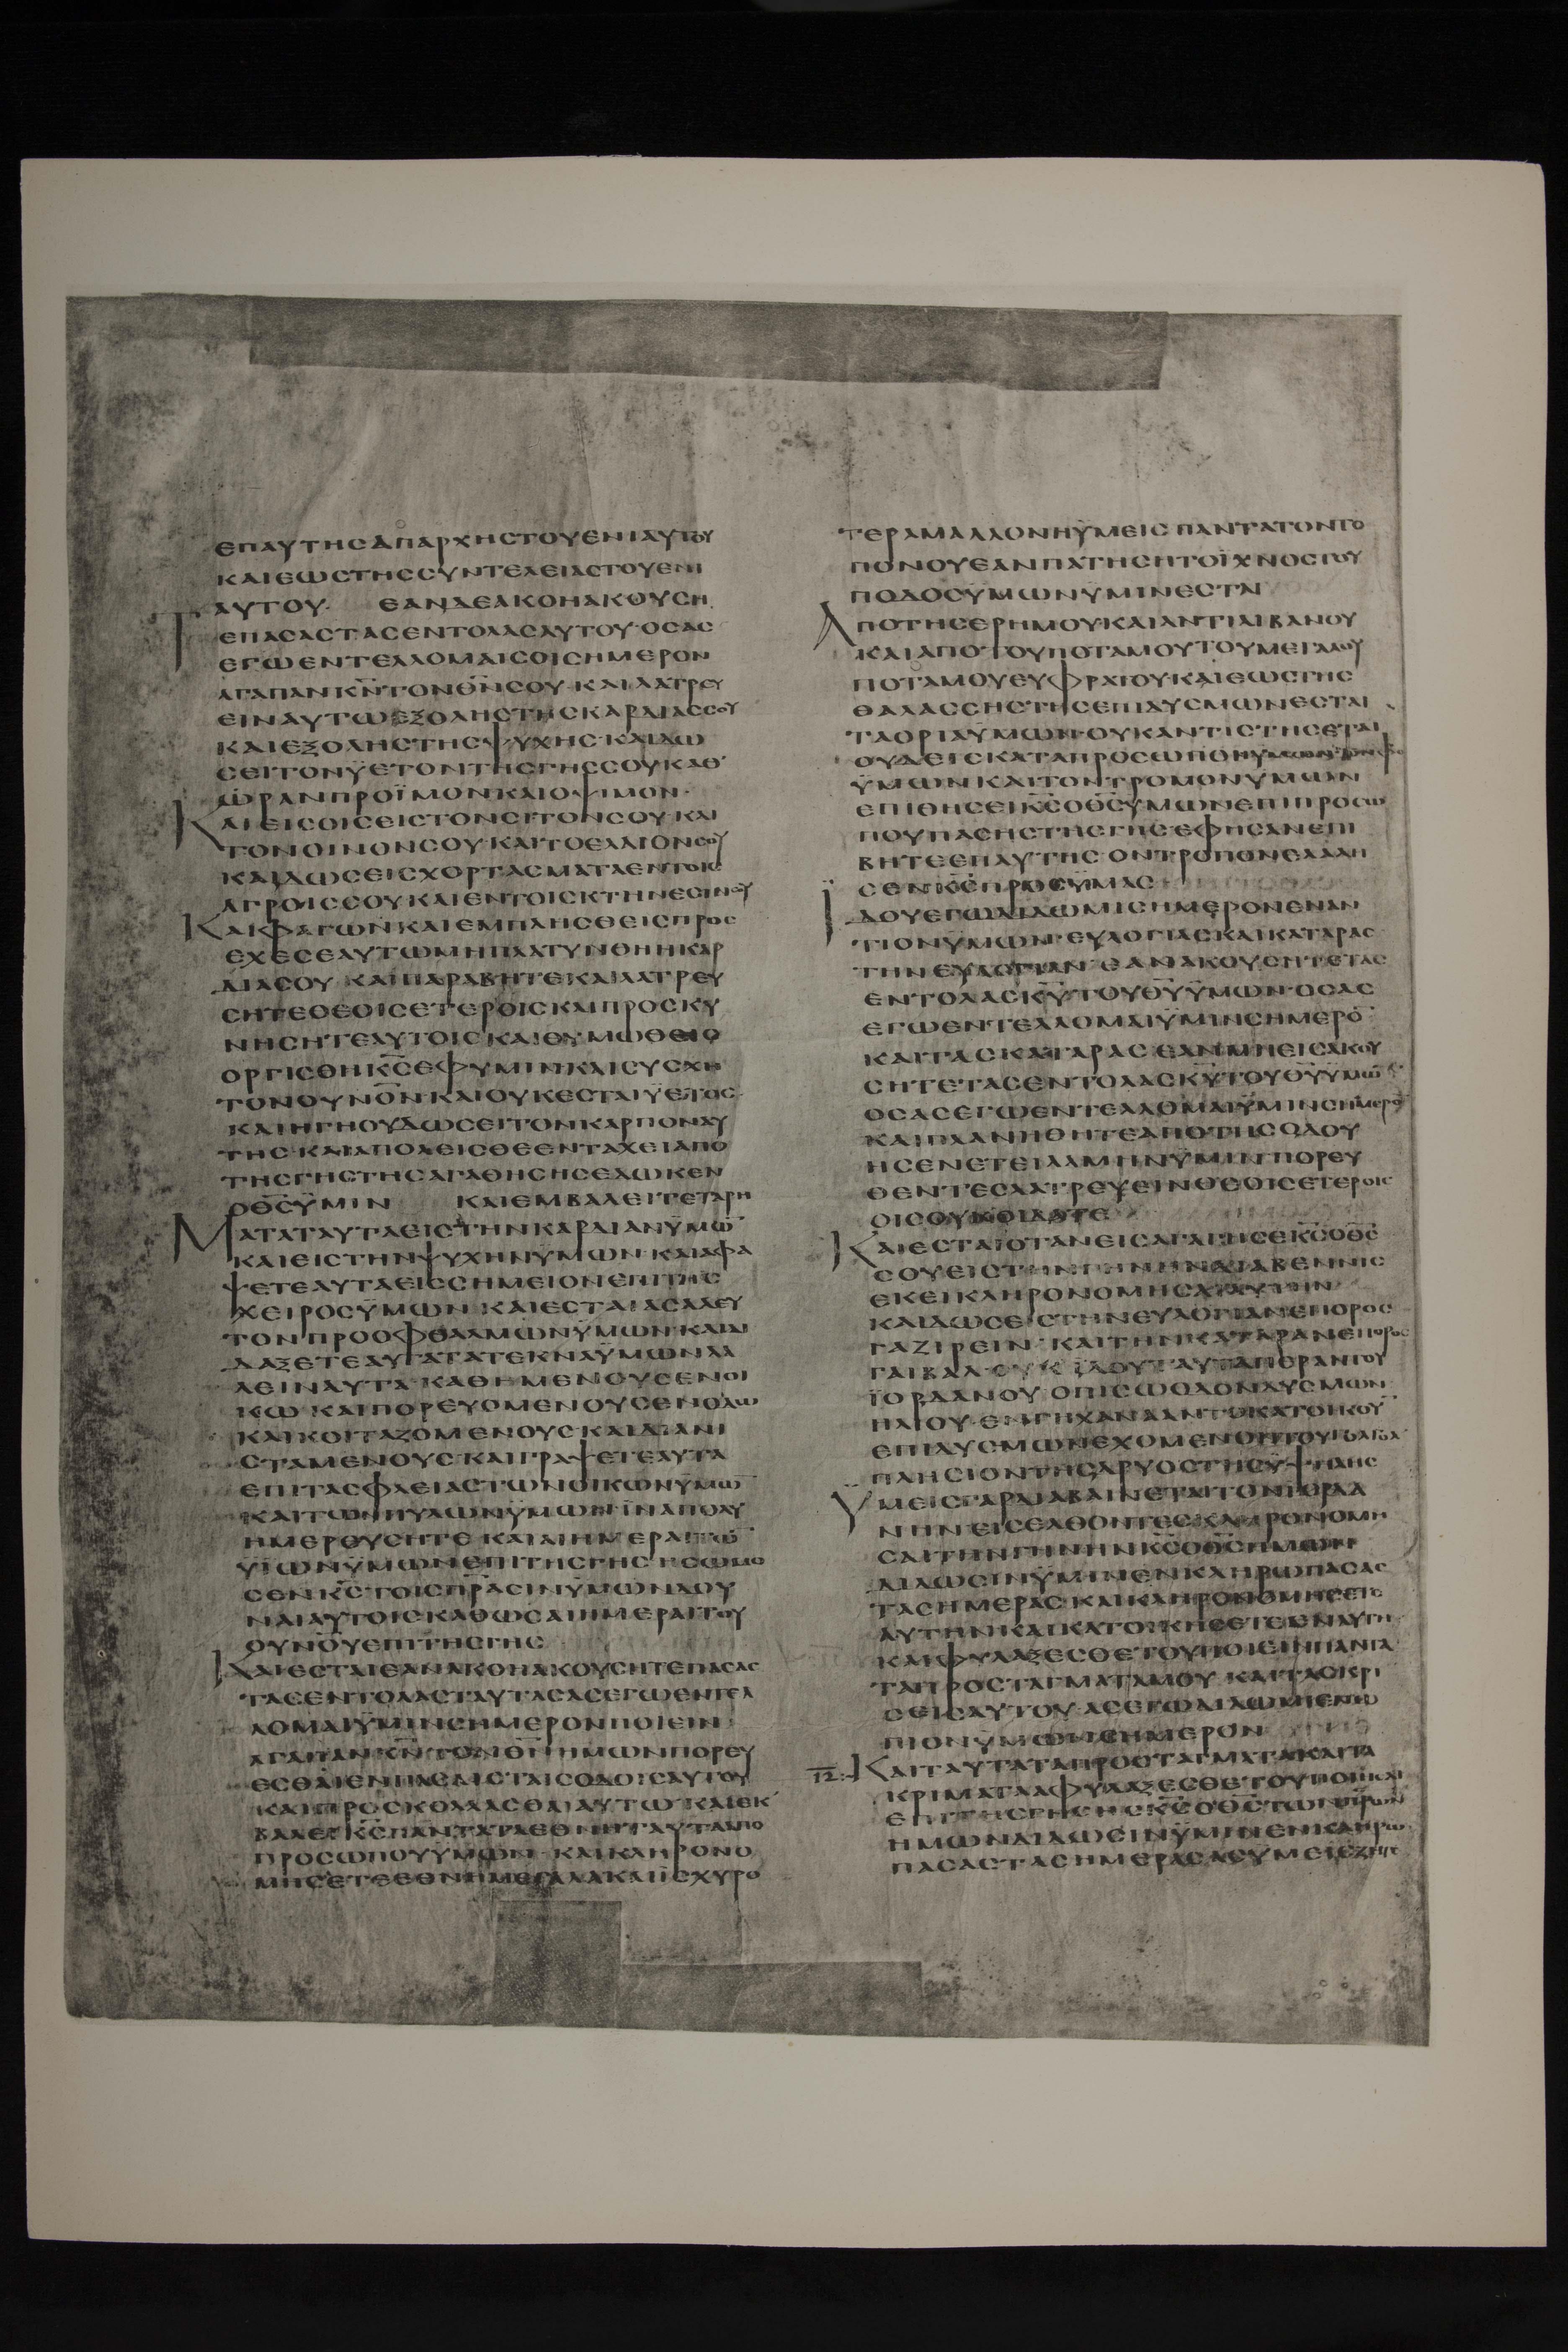 ΕΠΑΥΤΗΣΑΠΑΡΧΗΣΤΟΥΕΝΙΑΥΤΟΥ
ΚΑΙΕΩΣΤΗΣΣΥΝΤΕΛΕΙΑΣΤΟΥΕΝΙ
ΑΥΤΟΥ· ΕΑΝΔΕΑΚΟΗΑΚΟΥΣΗ
ΤΕΠΑΣΑΣΤΑΣΕΝΤΟΛΑΣΑΥΤΟΥ·ΟΣΑΣ
ΕΓΩΕΝΤΕΛΛΟΜΑΙΣΟΙΣΗΜΕΡΟΝ
ΑΓΑΠΑΝΚ̅Ν̅ΤΟΝΘ̅Ν̅ΣΟΥ·ΚΑΙΛΑΤΡΕΥ
ΕΙΝΑΥΤΩΕΞΟΛΗΣΤΗΣΚΑΡΔΙΑΣΣΟΥ
ΚΑΙΕΞΟΛΗΣΤΗΣΨΥΧΗΣ·ΚΑΙΔΩ
ΣΕΙΤΟΝΫΕΤΟΝΤΗΣΓΗΣΣΟΥΚΑΘ
ΩΡΑΝΠΡΟΪΜΟΝΚΑΙΟΨΙΜΟΝ·
ΚΑΙΕΙΣΟΙΣΕΙΣΤΟΝΣΙΤΟΝΣΟΥΚΑΙ
ΤΟΝΟΙΝΟΝΣΟΥ·ΚΑΙΤΟΕΛΑΙΟΝΣΟΥ
ΚΑΙΔΩΣΕΙΣΧΟΡΤΑΣΜΑΤΑΕΝΤΟΙΣ
ΑΓΡΟΙΣΣΟΥΚΑΙΕΝΤΟΙΣΚΤΗΝΕΣΙΝΣΟΥ
ΚΑΙΦΑΓΩΝΚΑΙΕΜΠΛΗΣΘΕΙΣΠΡΟΣ
ΕΧΕΣΕΑΥΤΩΜΗΠΛΑΤΥΝΘΗΗΚΑΡ
ΔΙΑΣΟΥ·ΚΑΙΠΑΡΑΒΗΤΕΚΑΙΛΑΤΡΕΥ
ΣΗΤΕΘΕΟΙΣΕΤΕΡΟΙΣΚΑΙΠΡΟΣΚΥ
ΝΗΣΗΤΕΑΥΤΟΙΣΚΑΙΘΥΜΩΘΕΙΣ
ΟΡΓΙΣΘΗΚ̅Σ̅ΕΦΥΜΙΝΚΑΙΣΥΣΧΗ
ΤΟΝΟΥΝΟ̅Ν̅ΚΑΙΟΥΚΕΣΤΑΙΫΕΤΟΣ·
ΚΑΙΗΓΗΟΥΔΩΣΕΙΤΟΝΚΑΡΠΟΝΑΥ
ΤΗΣ·ΚΑΙΑΠΟΛΕΙΣΘΕΕΝΤΑΧΕΙΑΠΟ
ΤΗΣΓΗΣΤΗΣΑΓΑΘΗΣΗΣΕΔΩΚΕΝ
ΟΘ̅Σ̅ΫΜΙΝ ΚΑΙΕΜΒΑΛΕΙΤΕΤΑΡΗ
ΜΑΤΑΤΑΥΤΑΕΙΣΤΗΝΚΑΡΔΙΑΝΫΜΩ̅
ΚΑΙΕΙΣΤΗΝΨΥΧΗΝΥΜΩΝ·ΚΑΙΑΦΑ
ΨΕΤΕΑΥΤΑΕΙΣΣΗΜΕΙΟΝΕΠΙΤΗΣ
ΧΕΙΡΟΣΫΜΩΝ·ΚΑΙΕΣΤΑΙΑΣΑΛΕΥ
ΤΟΝΠΡΟΟΦΘΑΛΜΩΝΫΜΩΝ·ΚΑΙΔΙ
ΔΑΞΕΤΕΑΥΤΑΤΑΤΕΚΝΑΫΜΩΝΛΑ
ΛΕΙΝΑΥΤΑ·ΚΑΘΗΜΕΝΟΥΣΕΝΟΙ
ΚΩ·ΚΑΙΠΟΡΕΥΟΜΕΝΟΥΣΕΝΟΔΩ
ΚΑΙΚΟΙΤΑΖΟΜΕΝΟΥΣΚΑΙΔΙΑΝΙ
ΣΤΑΜΕΝΟΥΣ·ΚΑΙΓΡΑΨΕΤΕΑΥΤΑ
ΕΠΙΤΑΣΦΛΕΙΑΣΤΩΝΟΙΚΩΝΥΜΩ̅
ΚΑΙΤΩΝΠΥΛΩΝΫΜΩΝ·ΪΝΑΠΟΛΥ
ΗΜΕΡΟΥΣΗΤΕ·ΚΑΙΑΙΗΜΕΡΑΙΤΩ̅
ΥΪΩΝΫΜΩΝΕΠΙΤΗΣΓΗΣ·ΗΣΩΜΟ
ΣΕΝΚ̅Σ̅ΤΟΙΣΠ̅Ρ̅ΑΣΙΝΥΜΩΝΔΟΥ
ΝΑΙΑΥΤΟΙΣΚΑΘΩΣΑΙΗΜΕΡΑΙΤΟΥ
ΟΥΝΟ̅Υ̅ΕΠΙΤΗΣΓΗΣ
ΚΑΙΕΣΤΑΙΕΑΝΑΚΟΗΑΚΟΥΣΗΤΕΠΑΣΑΣ
ΤΑΣΕΝΤΟΛΑΣΤΑΥΤΑΣΑΣΕΓΩΕΝΤΕΛ
ΛΟΜΑΙΫΜΙΝΣΗΜΕΡΟΝΠΟΙΕΙΝ·
ΑΓΑΠΑΝΚ̅Ν̅ΤΟΝΘ̅Ν̅ΗΜΩΝΠΟΡΕΥ
ΕΣΘΑΙΕΝΠΑΣΑΙΣΤΑΙΣΟΔΟΙΣΑΥΤΟΥ
ΚΑΙΠΡΟΣΚΟΛΛΑΣΘΑΙΑΥΤΩ·ΚΑΙΕΚ
ΒΑΛΕΙΚ̅Σ̅ΠΑΝΤΑΤΑΕΘΝΗΤΑΥΤΑΑΠΟ
ΠΡΟΣΩΠΟΥΫΜΩΝ·ΚΑΙΚΛΗΡΟΝΟ
ΜΗΣΕΤΕΕΘΝΗΜΕΓΑΛΑΚΑΙΪΣΧΥΡΟ
ΤΕΡΑΜΑΛΛΟΝΗΫΜΕΙΣΠΑΝΤΑΤΟΝΤΟ
ΠΟΝΟΥΕΑΝΠΑΤΗΣΗΤΟΪΧΝΟΣΤΟΥ
ΠΟΔΟΣΫΜΩΝΫΜΙΝΕΣΤΑΙ
ΑΠΟΤΗΣΕΡΗΜΟΥΚΑΙΑΝΤΙΛΙΒΑΝΟΥ
ΚΑΙΑΠΟΤΟΥΠΟΤΑΜΟΥΤΟΥΜΕΓΑΛΟΥ
ΠΟΤΑΜΟΥΕΥΦΡΑΤΟΥΚΑΙΕΩΣΤΗΣ
ΘΑΛΑΣΣΗΣΤΗΣΕΠΙΔΥΣΜΩΝΕΣΤΑΙ
ΤΑΟΡΙΑΫΜΩΝ·ΟΥΚΑΝΤΙΣΤΗΣΕΤΑΙ
ΟΥΔΕΙΣΚΑΤΑΠΡΟΣΩΠΟΝ
ΫΜΩΝΚΑΙΤΟΝΤΡΟΜΟΝΥΜΩΝ
ΕΠΙΘΗΣΕΙΚ̅Σ̅ΟΘ̅Σ̅ΥΜΩΝΕΠΙΠΡΟΣΩ
ΠΟΥΠΑΣΗΣΤΗΣΓΗΣΕΦΗΣΑΝΕΠΙ
ΒΗΤΕΕΠΑΥΤΗΣ·ΟΝΤΡΟΠΟΝΕΛΑΛΗ
ΣΕΝΚ̅Σ̅ΠΡΟΣΫΜΑΣ
ΪΔΟΥΕΓΩΔΙΔΩΜΙΣΗΜΕΡΟΝΕΝΑΝ
ΤΙΟΝΫΜΩΝ·ΕΥΛΟΓΙΑΣΚΑΙΚΑΤΑΡΑΣ
ΤΗΝΕΥΛΟΓΙΑΝ·ΕΑΝΑΚΟΥΣΗΤΕΤΑΣ
ΕΝΤΟΛΑΣΚ̅Υ̅ΤΟΥΘ̅Υ̅ΫΜΩΝ·ΟΣΑΣ
ΕΓΩΕΝΤΕΛΛΟΜΑΙΫΜΙΝΣΗΜΕΡΟ̅
ΚΑΙΤΑΣΚΑΤΑΡΑΣΕΑΝΜΗΕΙΣΑΚΟΥ
ΣΗΤΕΤΑΣΕΝΤΟΛΑΣΚ̅Υ̅ΤΟΥΘ̅Υ̅ΥΜΩ̅
ΟΣΑΣΕΓΩΕΝΤΕΛΛΟΜΑΙΫΜΙΝΣΗΜΕΡΟ̅
ΚΑΙΠΛΑΝΗΘΗΤΕΑΠΟΤΗΣΟΔΟΥ
ΗΣΕΝΕΤΕΙΛΑΜΗΝΫΜΙΝΠΟΡΕΥ
ΘΕΝΤΕΣΛΑΤΡΕΥΕΙΝΘΕΟΙΣΕΤΕΡΟΙΣ
ΟΙΣΟΥΚΟΙΔΑΤΕ
ΚΑΙΕΣΤΑΙΟΤΑΝΕΙΣΑΓΑΓΗΣΕΚ̅Σ̅ΟΘ̅Σ̅
ΣΟΥΕΙΣΤΗΝΓΗΝΗΝΔΙΑΒΕΝΝΙΣ
ΕΚΕΙΚΛΗΡΟΝΟΜΗΣΑΙΑΥΤΗΝ
ΚΑΙΔΩΣΕΙΣΤΗΝΕΥΛΟΓΙΑΝΕΠΟΡΟΣ
ΓΑΖΙΡΕΙΝ·ΚΑΙΤΗΝΚΑΤΑΡΑΝΕΠΟΡΟΣ
ΓΑΙΒΑΛ·ΟΥΚΪΔΟΥΤΑΥΤΑΠΕΡΑΝΤΟΥ
ΪΟΡΔΑΝΟΥΟΠΙΣΩΟΔΟΝΔΥΣΜΩΝ
ΗΛΙΟΥ·ΕΝΓΗΧΑΝΑΑΝΤΟΚΑΤΟΙΚΟΥ̅
ΕΠΙΔΥΣΜΩΝΕΧΟΜΕΝΟΝΤΟΥ
ΠΛΗΣΙΟΝΤΗΣΔΡΥΟΣΤΗΣΫΨΗΛΗΣ
ΫΜΕΙΣΓΑΡΔΙΑΒΑΙΝΕΤΑΙΤΟΝΙΟΡΔΑ
ΝΗΝΕΙΣΕΛΘΟΝΤΕΣΚΛΗΡΟΝΟΜΗ
ΣΑΙΤΗΝΓΗΝΗΝΚ̅Σ̅ΟΘ̅Σ̅ΗΜΩΝ
ΔΙΔΩΣΙΝΫΜΙΝΕΝΚΛΗΡΩΠΑΣΑΣ
ΤΑΣΗΜΕΡΑΣ·ΚΑΙΚΛΗΡΟΝΟΜΗΣΕΤΕ
ΑΥΤΗΝΚΑΙΚΑΤΟΙΚΗΣΕΤΕΕΝΑΥΤΗ
ΚΑΙΦΥΛΑΞΕΣΘΕΤΟΥΠΟΙΕΙΝΠΑΝΤΑ
ΤΑΠΡΟΣΤΑΓΜΑΤΑΜΟΥ·ΚΑΙΤΑΣΚΡΙ
ΣΕΙΣΑΥΤΟΥ·ΑΣΕΓΩΔΙΔΩΜΙΕΝΩ
ΠΙΟΝΥΜΩΝΣΗΜΕΡΟΝ
ΚΑΙΤΑΥΤΑΤΑΠΡΟΣΤΑΓΜΑΤΑΚΑΙΤΑ
ΚΡΙΜΑΤΑΑΦΥΛΑΞΕΣΘΕΤΟΥΠΟΙΕΙΝ
ΕΠΙΤΗΣΓΗΣΗΣΚ̅Σ̅ΟΘ̅Σ̅ΤΩΝ
ΗΜΩΝΔΙΔΩΣΙΝΫΜΙΝΕΝΚΛΗΡΩ
ΠΑΣΑΣΤΑΣΗΜΕΡΑΣΑΣΥΜΕΙΣΖΗΤΕ